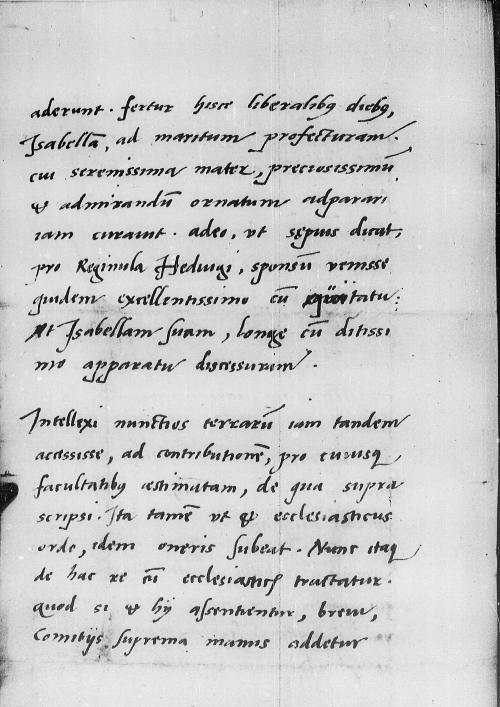 aderunt. fertur hisce liberalibꝫ diebꝫ,
Isabellā, ad maritum profecturam.
cui serenissima mater, preciosissimū
& admirandū ornatum adparari
iam curauit. adeo, vt sępius dicat,
pro Reginula Heduigi, sponsū venisse
quidem excellentissimo cū eqūitatu:
At Isabellam suam, longe cū ditissi
mo apparatu discessuram.
Intellexi nunctios terrarū iam tandem
accessisse, ad contributionē, pro cuiusqꝫ
facultatibꝫ æstimatam, de qua supra
scripsi. Ita tamē vt & ecclesiasticus
ordo, idem oneris subeat. Nunc itaqꝫ
de hac re cū ecclesiasticꝭ tractatur.
quod si & hij assentientur, breui,
Comitijs suprema manus addetur